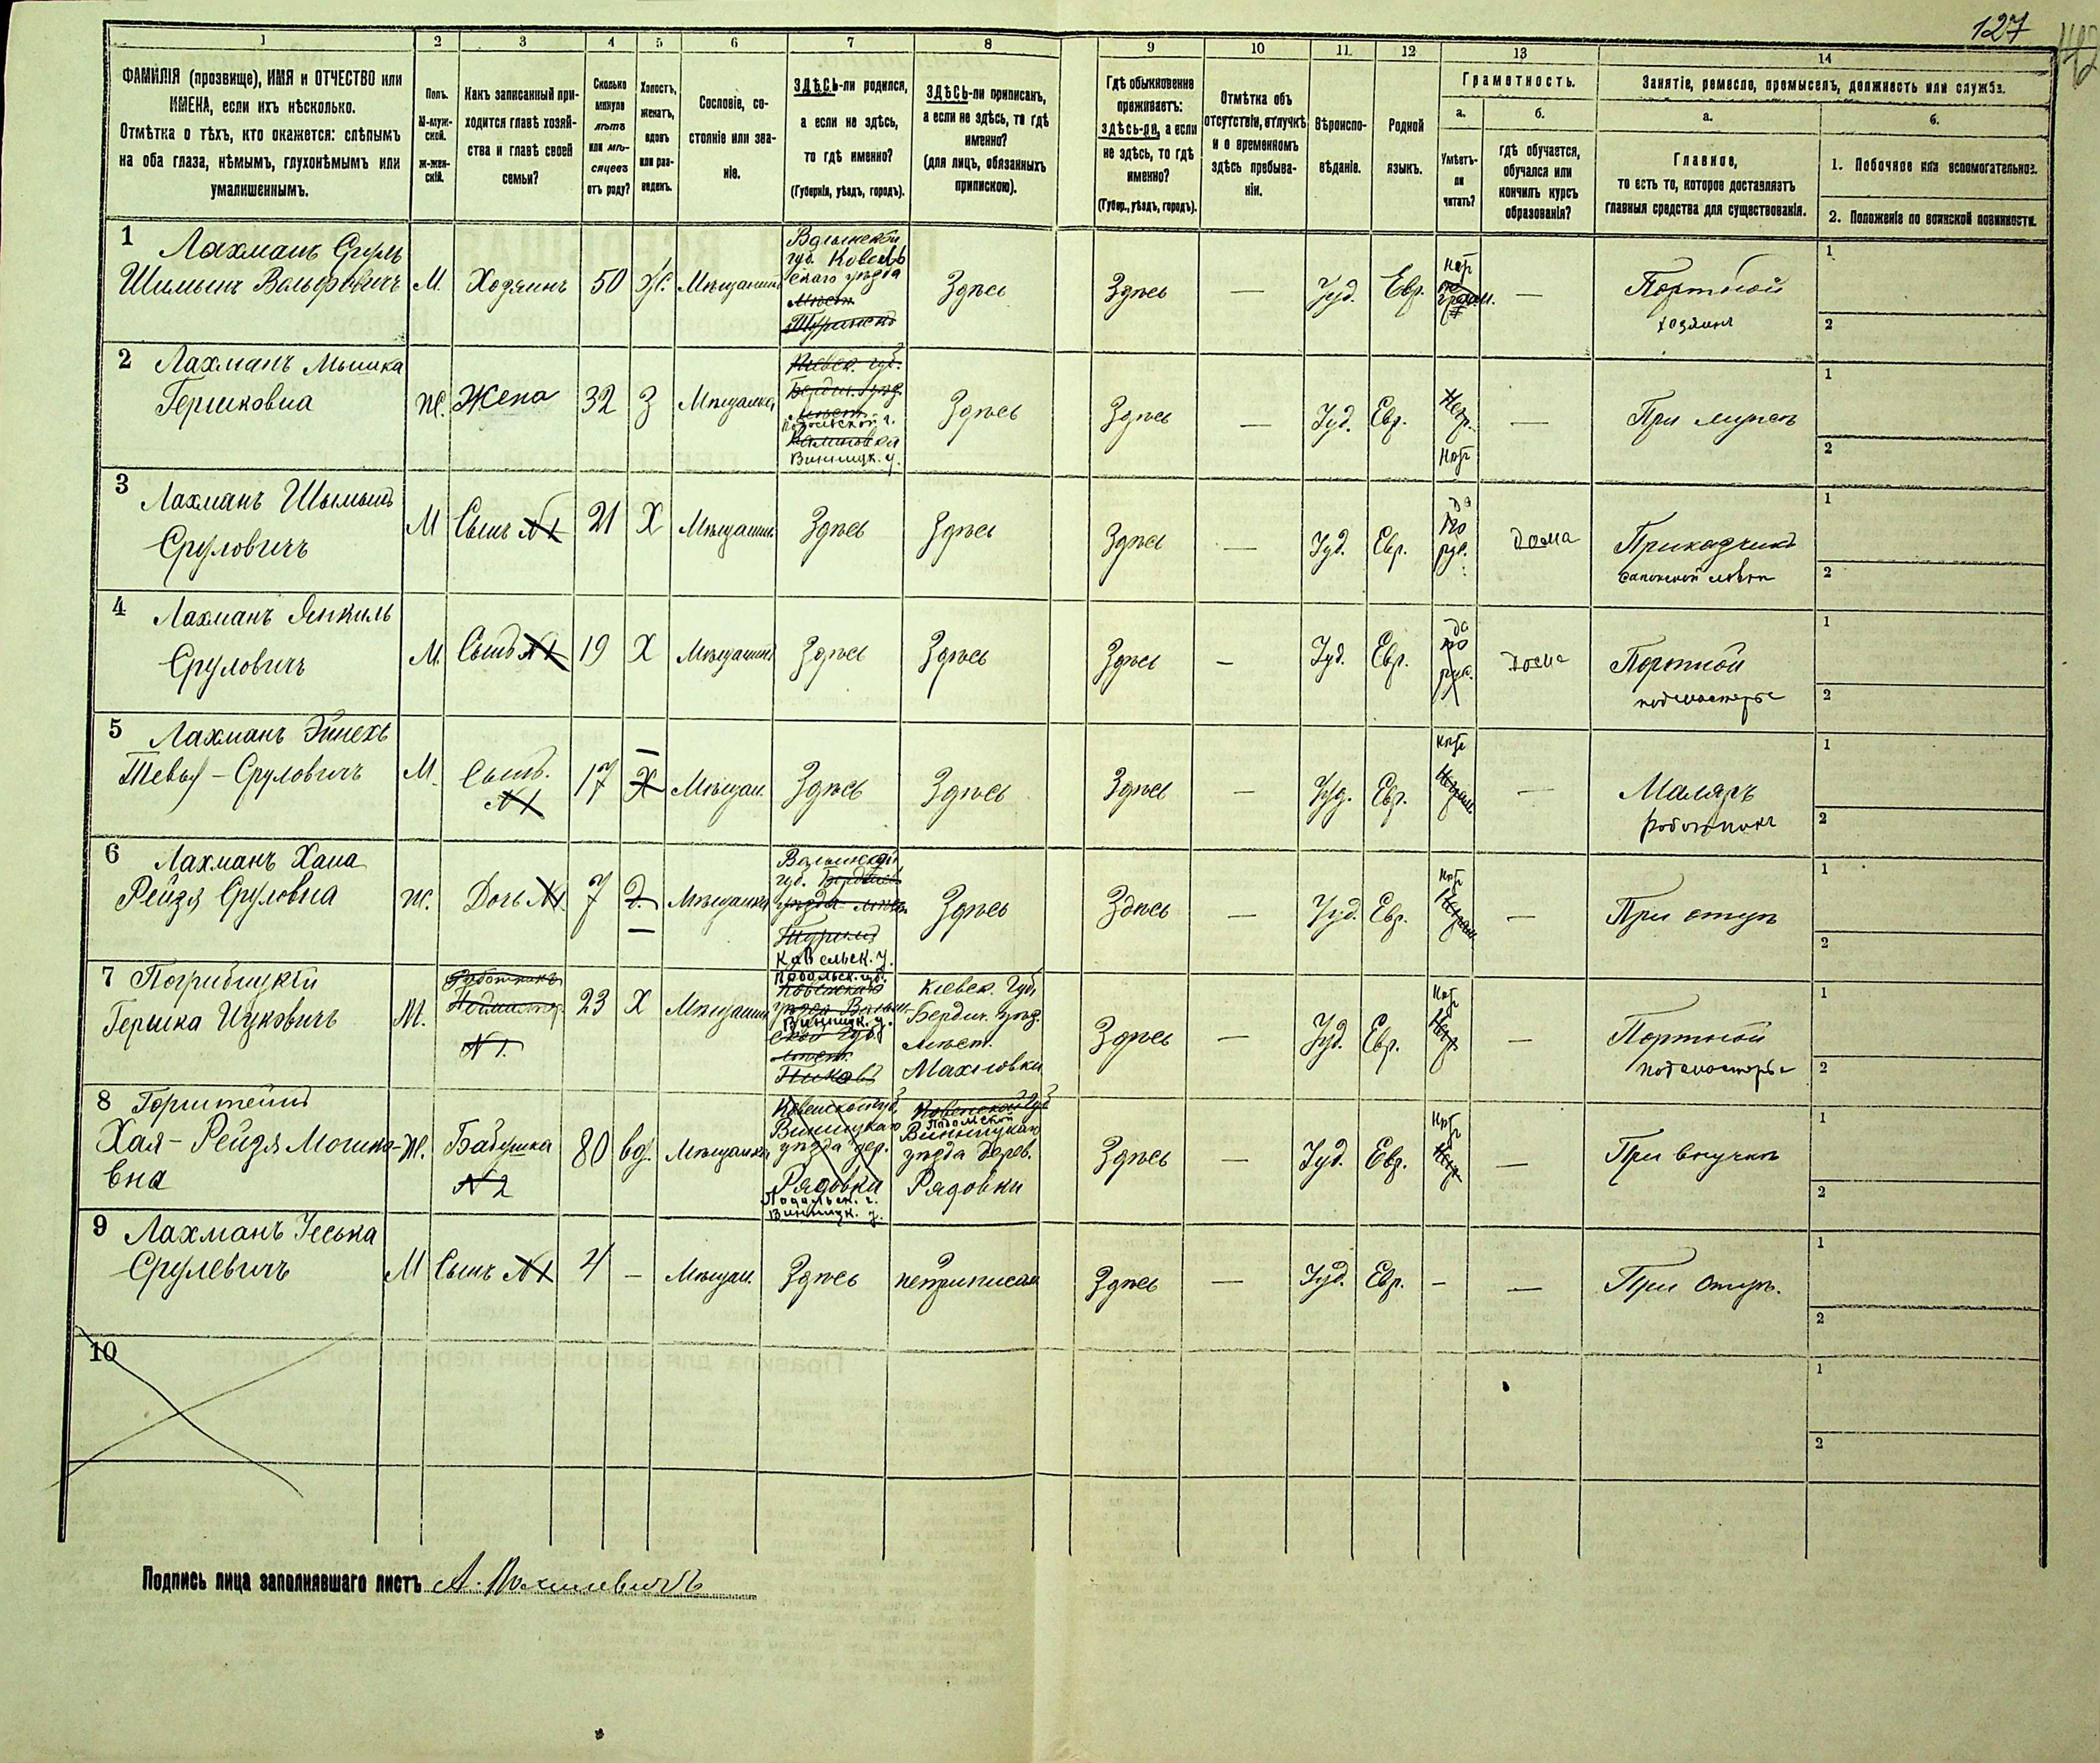 127
1 2 3 4 5 6 7 8 9 10 11. 12 13 14
ФАМИЛІЯ (прозвище), ИМЯ и ОТЧЕСТВО или
ИМЕНА, если ихъ нѣсколько.
Отмѣтка о тѣхъ, кто окажется: слѣпымъ
на оба глаза, нѣмымъ, глухонѣмымъ или
умалишеннымъ.
Полъ.
М-муж-
ской.
Ж-жен-
скій.
Какъ записанный при-
ходится главѣ хозяй-
ства и главѣ своей
семьи?
Сколько
минуло
лѣтъ
или мѣ-
сяцевъ
отъ роду?
Холостъ,
женатъ,
вдовъ
или раз-
веденъ.
Сословіе, со-
стояніе или зва-
ніе.
ЗДѢСЬ-ли родился,
а если не здѣсь,
то гдѣ именно?
(Губернія, уѣздъ, городъ).
ЗДѢСЬ-ли приписанъ,
а если не здѣсь, то гдѣ
именно?
(для лицъ, обязанныхъ
припискою).
Гдѣ обыкновенно
проживаетъ:
здѣсь-ли, а если
не здѣсь, то гдѣ
именно?
(Губер., уѣздъ, городъ).
Отмѣтка объ
отсутствіи, отлучкѣ
и о временномъ
здѣсь пребыва-
ніи.
Вѣроиспо-
вѣданіе.
Родной
языкъ.
Грамотность.
а.
Умѣетъ-
ли
читать?
б.
гдѣ обучается,
обучался или
кончилъ курсъ
образованія?
Занятіе, ремесло, промыселъ, должность или служба.
а.
Главное,
то есть то, которое доставляетъ
главныя средства для существованія.
б.
1. Побочное или вспомогательное.
2. Положеніе по воинской повинности.
1 Лахманъ Сруль
Шимынъ Вольфовичъ
М. Хозяинъ 50 Ж. Мѣщанинъ
Волынской
губ. Ковель
скаго уѣзда
Мѣст.
Здѣсь Здѣсь — Іуд. Евр. —
Портной
хозяинъ
1
2
2 Лахманъ Мышка
Гершковна
Ж. Жена 32 З Мѣщанка
Кіевск. губ.
Бердич. уѣзд.
Мѣст.
Подольской г.
Винницк. у.
Здѣсь Здѣсь — Іуд. Евр. Негр. —
При мужѣ
1
2
3 Лахманъ Шымынъ
Сруловичъ
М Сынъ N1 21 Х Мѣщанин. Здѣсь Здѣсь Здѣсь — Іуд. Евр.
да
по
рус.
дома
Прикащикъ
1
2
4 Лахманъ Янкиль
Сруловичъ
М. Сынъ N1 19 Х Мѣщанинъ Здѣсь Здѣсь Здѣсь — Іуд. Евр.
да
по
рус.
дома
Портной
подмастерье
1
2
5 Лахманъ Эйнехъ
Тевья - Сруловичъ
М. Сынъ.
N1
17 Х Мѣщан. Здѣсь Здѣсь Здѣсь — Іуд. Евр. —
Маляръ
работникъ
1
2
6 Лахманъ Хана
Рейзя Сруловна
Ж. Дочь N1. 7 Д. Мѣщанка
Волынской
губ.
уѣзда мѣст.
Ковельск. у.
Здѣсь Здѣсь — Іуд. Евр. —
При отцѣ
1
2
7 Погрибицкій
Гершка Ицковичъ
М.
Работникъ
Подмастер.
N 1.
23 Х Мѣщанин.
Подольск. губ.
Винницк. у.
ской губ.
мѣст.
Пиковъ
Кіевск. Губ.
Бердич. уѣзд.
Мѣст.
Махновки
Здѣсь — Іуд. Евр. Негр. —
Портной
подмастерье
1
2
8 Горштейнъ
Хая - Рейзя Мошко-
вна
Ж. Бабушка
N 2
80 вд. Мѣщанка
Винницкаго
уѣзда дер.
Рядовки
Подольск. г.
Винницк. у.
Ковенской Губ
Подольской
Винницкаго
уѣзда дерев.
Рядовки
Здѣсь — Іуд. Евр. Негр. —
При внучкѣ
1
2
9 Лахманъ Іеська
Срулевичъ
М Сынъ N1 4 — Мѣщан. Здѣсь неприписан Здѣсь — Іуд. Евр. — —
При отцѣ.
1
2
10
1
2
Подпись лица заполнявшаго листъ